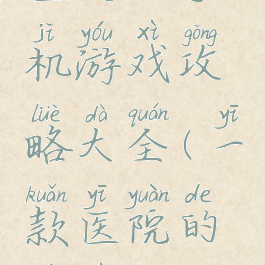 jī yóu xì gōng
机游戏攻
lüè dà quán yī
略大全(一
kuǎn yī yuàn de
款医院的